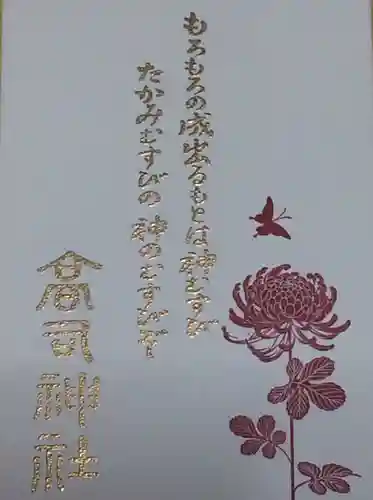 もろもろの成出るもとは神むすび
たかみむすびの神のむすびぞ
高司神社